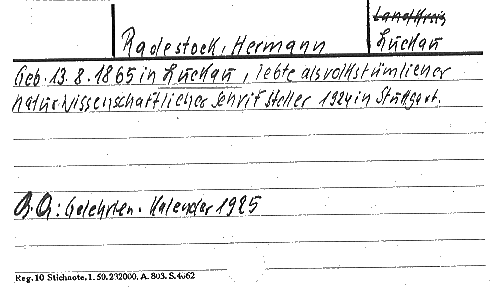 Landkreis
Radestock, Hermann Luckau
Geb. 13.8.1865 in Luckau, lebte als volkstümlicher
naturwissenschaftlicher Schriftsteller 1924 in Stuttgart.
Gelehrten-Kalender 1925
Reg. 10 Stichnote. I. 50. 232000. A. 803. S. 4062